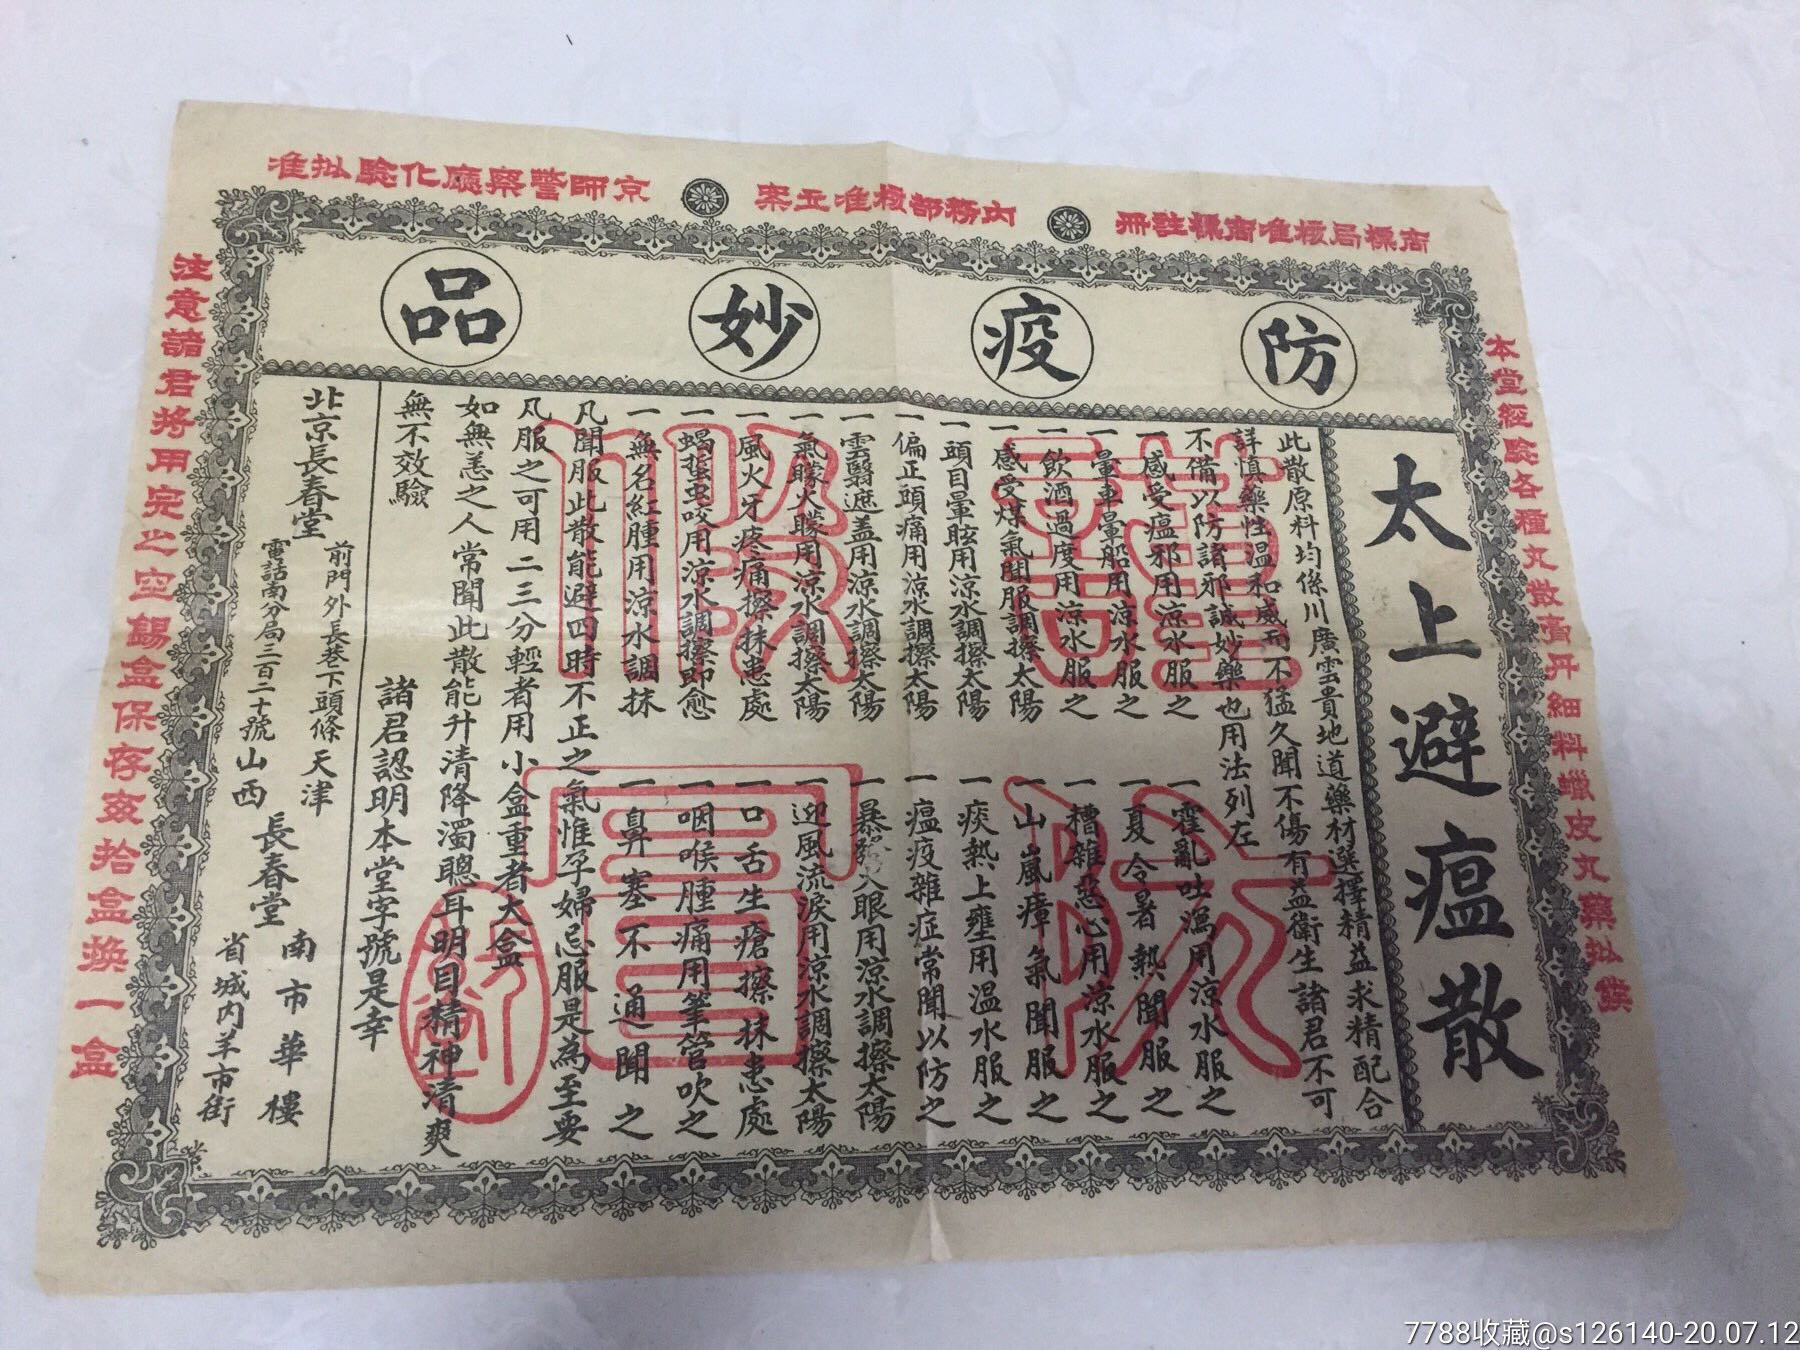 商標局核准商標註冊
內務部核准立案
京師警察廳化驗批准
本堂經驗各種丸散膏丹細料蠟皮丸藥批發
防疫妙品
太上避瘟散
此散原料均係川廣雲貴地道藥材選擇精益求精配合
詳慎藥性溫和威而不猛久聞不傷有益衛生諸君不可
不備以防諸邪誠妙藥也用法列左
一感受瘟邪用涼水服之
一霍亂吐瀉用涼水服之
一暈車暈船用涼水服之
一夏令暑熱聞服之
一飲酒過度用涼水服之
一糟雜惡心用涼水服之
一感受煤氣聞服調擦太陽
一山嵐瘴氣聞服之
一頭目暈眩用涼水調擦太陽
一痰熱上壅用溫水服之
一偏正頭痛用涼水調擦太陽
一瘟疫雜症常聞以防之
一雲翳遮盖用涼水調擦太陽
一暴發火眼用涼水調擦太陽
一氣矇火矇用涼水調擦太陽
一迎風流淚用涼水調擦太陽
一風火牙疼痛擦抹患處
一口舌生瘡擦抹患處
一蝎蜇虫咬用涼水調擦即愈
一咽喉腫痛用筆管吹之
一無名紅腫用涼水調抹
一鼻塞不通聞之
凡聞服此散能避四時不正之氣惟孕婦忌服是為至要
凡服之可用二三分輕者用小盒重者大盒
如無恙之人常聞此散能升清降濁聰耳明目精神清爽
無不效驗
諸君認明本堂字號是幸
北京長春堂
前門外長巷下頭條
電話南分局三百二十號
天津
山西
長春堂
南市華樓
省城內羊市街
注意諸君將用完之空錫盒保存交拾盒換一盒
7788收藏@s126140-20.07.12